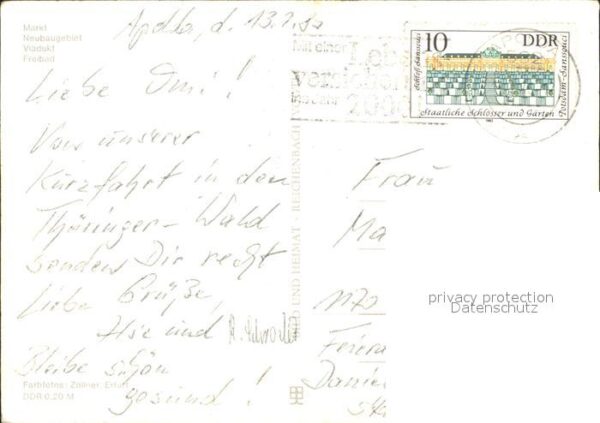 Markt
Neubaugebiet
Viadukt
Freibad
Apolda, d. 13.7.
Liebe Omi!
Von unserer
Kurzfahrt in den
Thüringer-Wald
senden Dir recht
liebe Grüße,
Ilse und
Bleibe schön
gesund!
Farbfotos: Zöllner, Erfurt
DDR 0,20 M
BILD UND HEIMAT · REICHENBACH
Mit einer
ins Jahr
2000
10 DDR
Schloß Sanssouci
Potsdam-Sanssouci
Staatliche Schlösser und Gärten
Frau
Ma
1170
privacy protection
Datenschutz